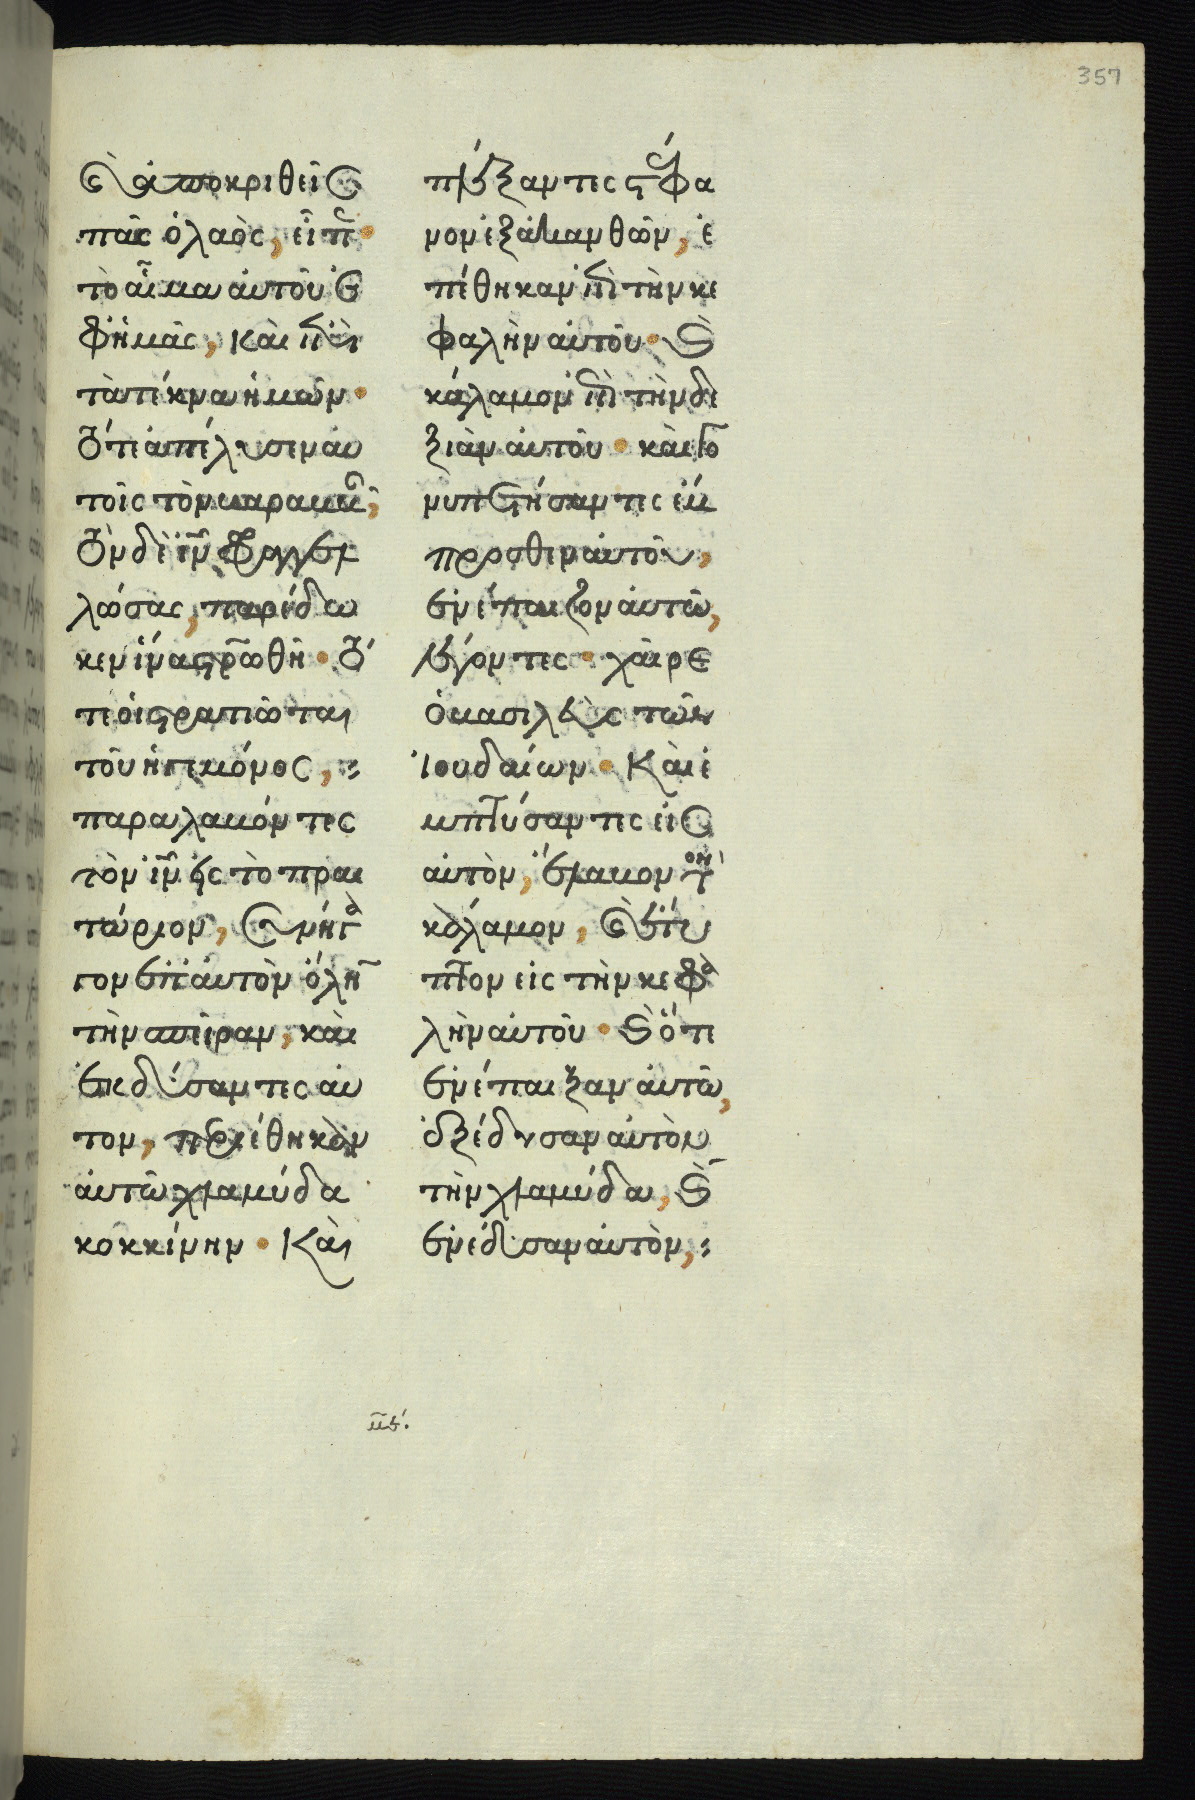 Καὶ ἀποκριθεὶς
πᾶς ὁ λαὸς, εἶπεν·
τὸ αἷμα αὐτοῦ ἐ
φ' ἡμᾶς, καὶ ἐπὶ
τὰ τέκνα ἡμῶν·
τότε ἀπέλυσεν αὐ
τοῖς τὸν βαραββᾶν,
τὸν δὲ ἰ̅ν̅ φραγγελ
λώσας, παρέδω
κεν ἵνα στ̅ρ̅ωθῆ· τό
τε οἱ στρατιῶται
τοῦ ἡγεμόνος,
παραλαβόντες
τὸν ἰ̅ν̅ εἰς τὸ πραι
τώριον, συνήγα
γον ἐπ' αὐτὸν ὅλην
τὴν σπεῖραν, καὶ
ἐκδύσαντες αὐ
τον, περιέθηκαν
αὐτῶ χλαμύδα
κοκκίνην· Καὶ
πλέξαντες στέφα
νον ἐξ ἀκανθῶν, ἐ
πέθηκαν ἐπὶ τὴν κε
φαλὴν αὐτοῦ· καὶ
κάλαμον ἐπὶ τὴν δε
ξιὰν αὐτοῦ· καὶ γο
νυπετήσαντες ἔμ
προσθεν αὐτοῦ,
ἐνέπαιζον αὐτῶ,
λέγοντες· χαῖρε
ὁ βασιλεὺς τῶν
ἰουδαίων· Καὶ ἐ
μπτύσαντες εἰς
αὐτὸν, ἔλαβον τὸν
κάλαμον, καὶ ἔτυ
πτον εἰς τὴν κεφα
λὴν αὐτοῦ· καὶ ὅτε
ἐνέπαιξαν αὐτῶ,
ἐξέδυσαν αὐτὸν
τὴν χλαμύδα, καὶ
ἐνέδυσαν αὐτὸν,
μ̅ϛ'.
357